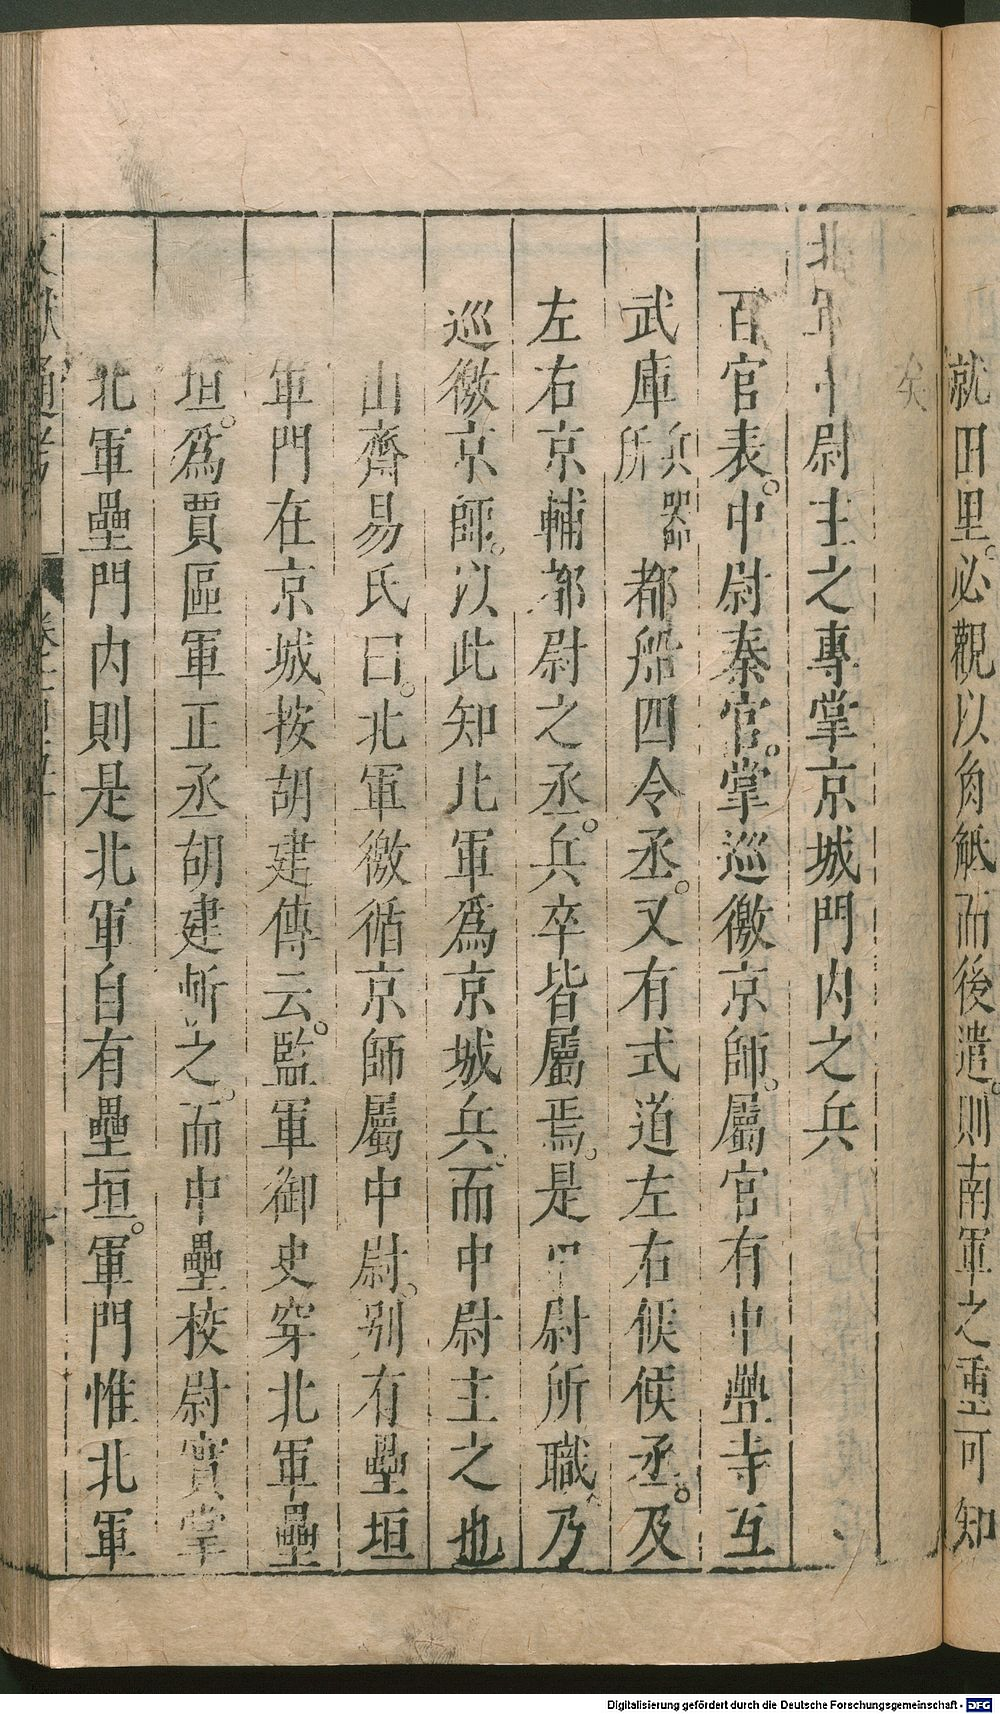 就田里必觀以角觝而後遣則南軍之重可知
矣
北軍中尉主之專掌京城門內之兵
百官表中尉秦官掌巡徼京師屬官有中壘寺互
武庫兵器所都船四令丞又有式道左右候候丞及
左右京輔都尉之丞兵卒皆屬焉是中尉所職乃
巡徼京師以此知北軍爲京城兵而中尉主之也
山齋易氏曰北軍徼循京師屬中尉別有壘垣
軍門在京城按胡建傳云監軍御史穿北軍壘
垣爲賈區軍正丞胡建斬之而中壘校尉實掌
北軍壘門內則是北軍自有壘垣軍門惟北軍
文獻通考
Digitalisierung gefördert durch die Deutsche Forschungsgemeinschaft - DFG